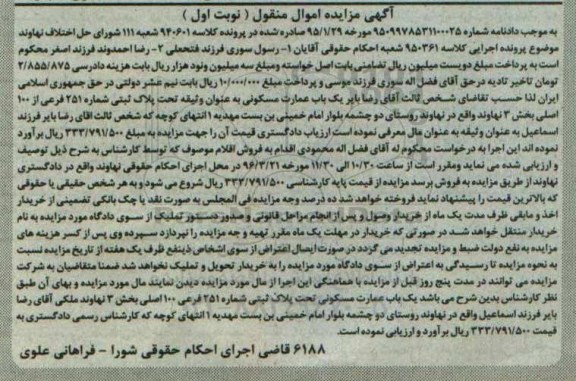 آگهی مزایده اموال منقول ( نوبت اول )
به موجب دادنامه شماره ۹۵۰۹۹۷۸۵۳۱۱۰۰۰۲۵ مورخه ۹۵/۱/۲۹ صادرشده در پرونده کلاسه ۹۴۰۶۰۱ شعبه ۱۱۱ شورای حل اختلاف نهاوند
موضوع پرونده اجرایی کلاسه ۹۵۰۳۶۱ شعبه احکام حقوقی آقایان ۱- رسول سوری فرزند فتحعلی ۲- رضا احمدوند فرزند اصغر محکوم
است به پرداخت مبلغ دویست میلیون ریال تضامنی بابت اصل خواسته ومبلغ سه میلیون ونود هزار ریال بابت هزینه دادرسی ۲/۸۵۵/۸۷۵
تومان تاخیر تادیه در حق آقای فضل اله سوری فرزند موسی و پرداخت مبلغ ۱۰/۰۰۰/۰۰۰ ریال بابت نیم عشر دولتی در حق جمهوری اسلامی
ایران لذا حسب تقاضای شخص ثالث آقای رضا بایر یک باب عمارت مسکونی به عنوان وثیقه تحت پلاک ثبتی شماره ۲۵۱ فرعی از ۱۰۰
اصلی بخش ۳ نهاوند واقع در نهاوند روستای دو چشمه بلوار امام خمینی بن بست مهدیه ۱ انتهای کوچه که شخص ثالث اقای رضا بایر فرزند
اسماعیل به عنوان وثیقه به عنوان مال معرفی نموده است ارزیاب دادگستری قیمت آن را جهت مزایده به مبلغ ۳۳۳/۷۹۱/۵۰۰ ریال برآورد
نموده اند این اجرا به درخواست محکوم له آقای فضل اله محمودی اقدام به فروش اقلام موصوف که توسط کارشناس به شرح ذیل توصیف
و ارزیابی شده می نماید ومقرر است از ساعت ۱۰/۳۰ الی ۱۱/۳۰ مورخه ۹۶/۳/۲۱ در محل اجرای احکام حقوقی نهاوند واقع در دادگستری
نهاوند از طریق مزایده به فروش برسد مزایده از قیمت پایه کارشناسی ۳۳۳/۷۹۱/۵۰۰ ریال شروع می شود و به هر شخص حقیقی یا حقوقی
که بالاترین قیمت را پیشنهاد نماید فروخته خواهد شد ده درصد وجه مزایده فی المجلس به صورت نقد یا چک بانکی تضمینی از خریدار
اخذ و مابقی ظرف مدت یک ماه از خریدار وصول و پس از انجام مراحل قانونی و صدور دستور تملیک از سوی دادگاه مورد مزایده به نام
خریدار منتقل خواهد شد در صورتی که خریدار در مهلت یک ماه مقرر تهیه و جه مزایده را نپردازد سپرده وی پس از کسر هزینه های
مزایده به نفع دولت ضبط و مزایده تجدید می گردد در صورت ایصال اعتراض از سوی اشخاص ذینفع ظرف یک هفته از تاریخ مزایده نسبت
به نحوه مزایده تا رسیدگی به اعتراض از سوی دادگاه مورد مزایده را به خریدار تحویل و تملیک نخواهد شد ضمنا متقاضیان به شرکت
مزایده می توانند در مدت پنج روز قبل از مزایده با هماهنگی این اجرا از مال مورد مزایده دیدن نمایند مال مورد مزایده و بهای آن طبق
نظر کارشناس بدین شرح می باشد یک باب عمارت مسکونی تحت پلاک ثبتی شماره ۲۵۱ فرعی ۱۰۰ اصلی بخش ۳ نهاوند ملکی آقای رضا
بایر فرزند اسماعیل واقع در نهاوند روستای دو چشمه بلوار امام خمینی بن بست مهدیه ۱ انتهای کوچه که کارشناس رسمی دادگستری به
قیمت ۳۳۳/۷۹۱/۵۰۰ ریال برآورد و ارزیابی نموده است.
۶۱۸۸ قاضی اجرای احکام حقوقی شورا - فراهانی علوی